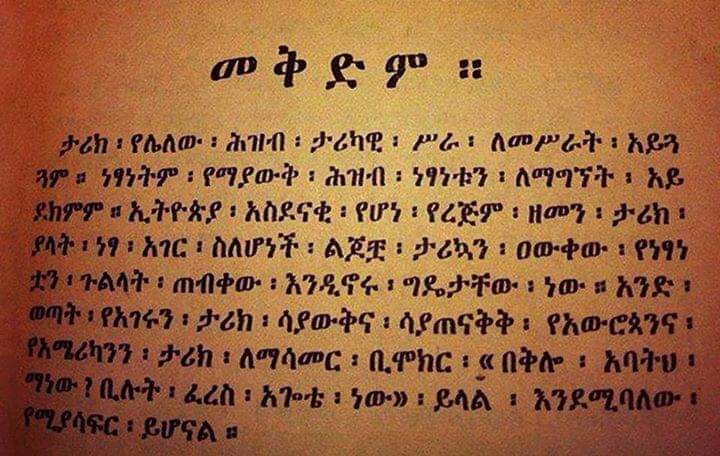 መቅድም ።
ታሪክ ፡ የሌለው ፡ ሕዝብ ፡ ታሪካዊ ፡ ሥራ ፡ ለመሥራት ፡ አይጓ
ጓም ። ነፃነትም ፡ የማያውቅ ፡ ሕዝብ ፡ ነፃነቱን ፡ ለማግኘት ፡ አይ
ደክምም ። ኢትዮጵያ ፡ አስደናቂ ፡ የሆነ ፡ የረጅም ፡ ዘመን ፡ ታሪክ ፡
ያላት ፡ ነፃ ፡ አገር ፡ ስለሆነች ፡ ልጆቿ ፡ ታሪኳን ፡ ዐውቀው ፡ የነፃነ
ቷን ፡ ጉልላት ፡ ጠብቀው ፡ እንዲኖሩ ፡ ግዴታቸው ፡ ነው ። አንድ ፡
ወጣት ፡ የአገሩን ፡ ታሪክ ፡ ሳያውቅና ፡ ሳያጠናቅቅ ፡ የአውሮጳንና ፡
የአሜሪካንን ፡ ታሪክ ፡ ለማሳመር ፡ ቢሞክር ፡ «በቅሎ ፡ አባትህ ፡
ማነው ? ቢሉት ፡ ፈረስ ፡ አጐቴ ፡ ነው» ፡ ይላል ፡ እንደሚባለው ፡
የሚያሳፍር ፡ ይሆናል ።